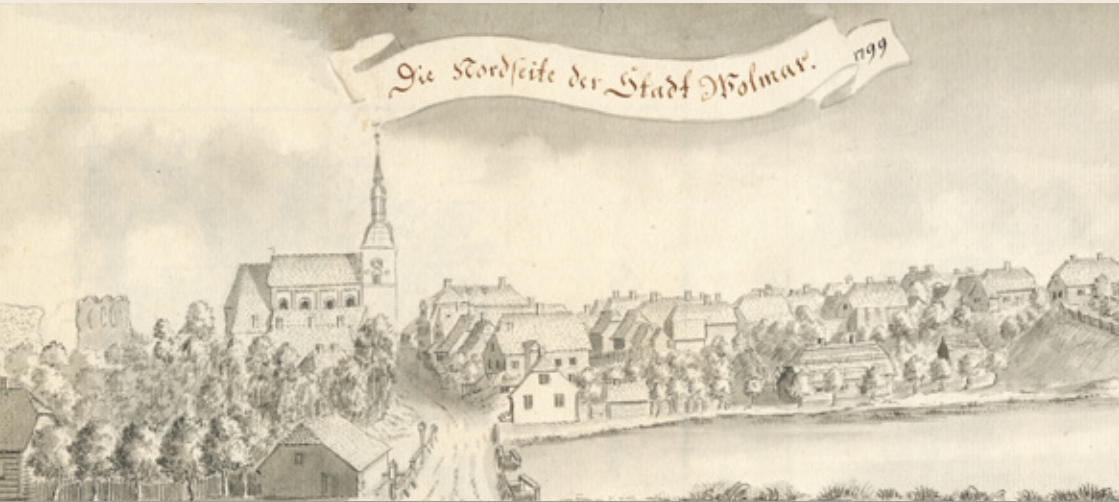 Die Nordseite der Stadt Wolmar.
1799